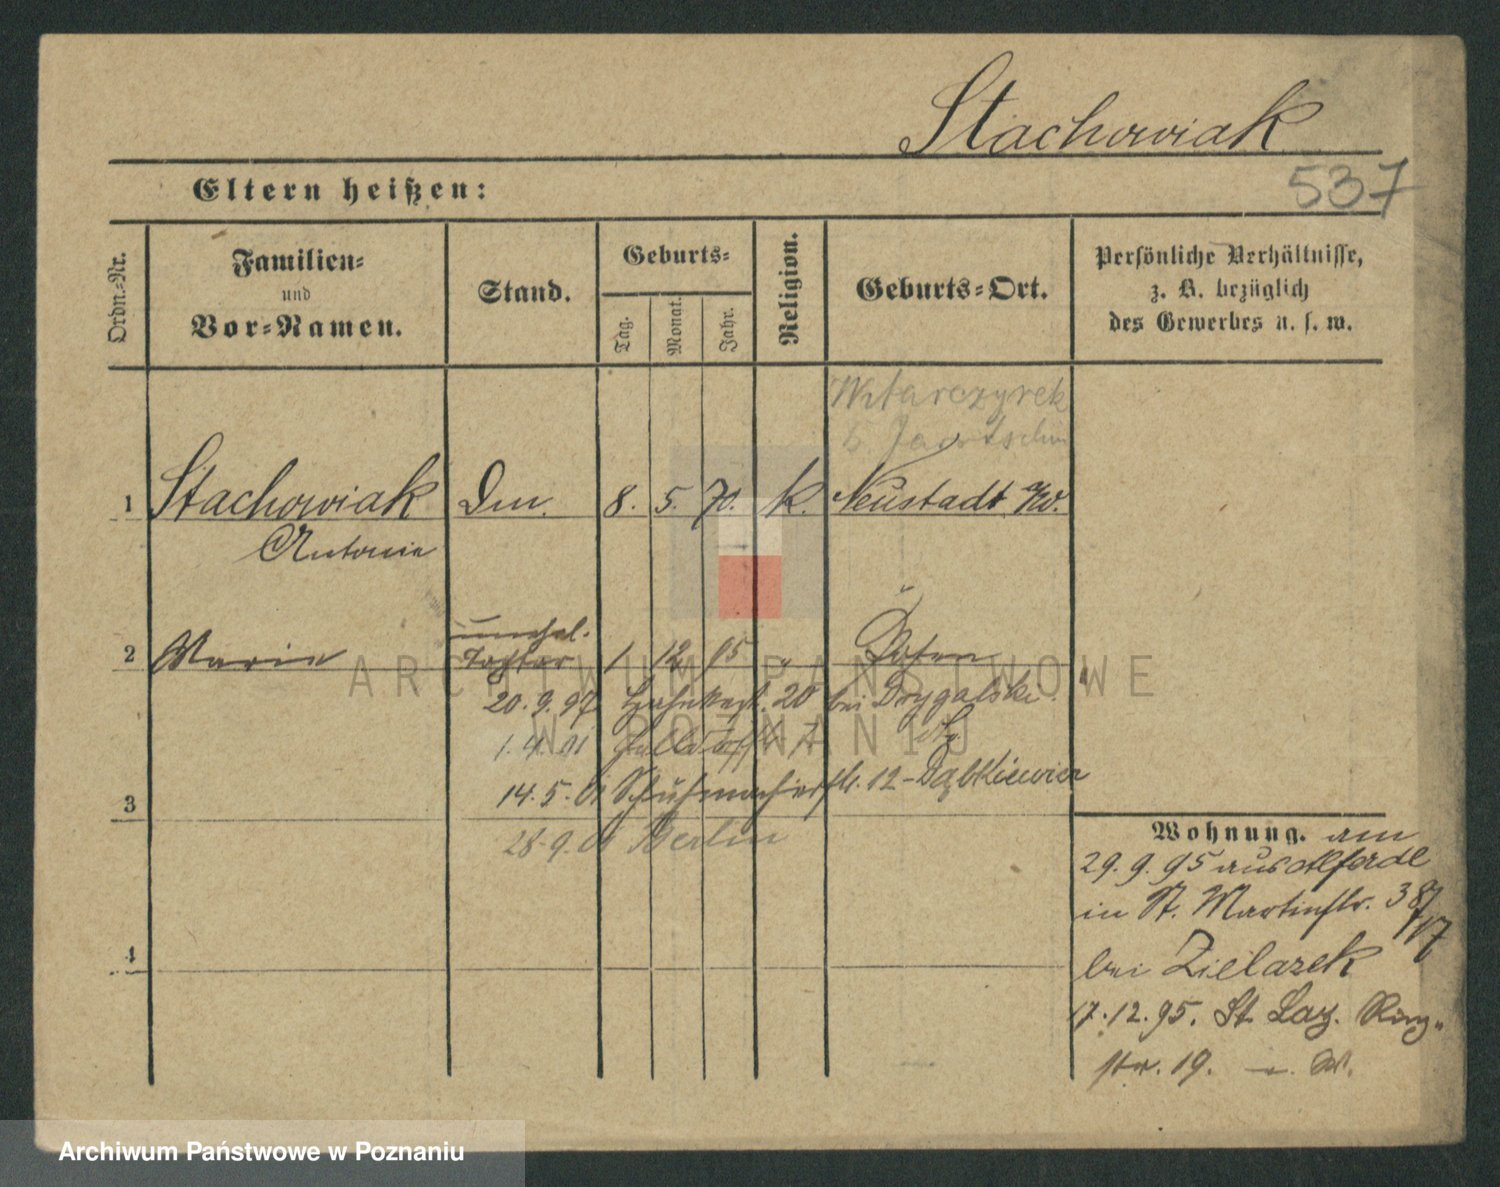 Stachowiak
537
Eltern heißen:
Ordn.-Nr.
Familien-
und
Vor-Namen.
Stand.
Geburts-
Tag.
Monat.
Jahr.
Religion.
Geburts-Ort.
Persönliche Verhältnisse,
z. B. bezüglich
des Gewerbes u. s. w.
b Jarotschin
1 Stachowiak Dm. 8. 5. 70. k. Neustadt a/W.
Antonie
unehel.
2 Marie Tochter 1 12 95 " Posen
20.9.97 20 bei Drygalski
1.4.01
3 14.5.01 Schuhmacherstr. 12 - Dąbkiewicz
28.9.01 Berlin
4
Wohnung. am
29.9.95 aus
in St. Martinstr. 38
bei Zielazek
17.12.95. St Laz. Ring-
str. 19.
ARCHIWUM PAŃSTWOWE
W POZNANIU
Archiwum Państwowe w Poznaniu